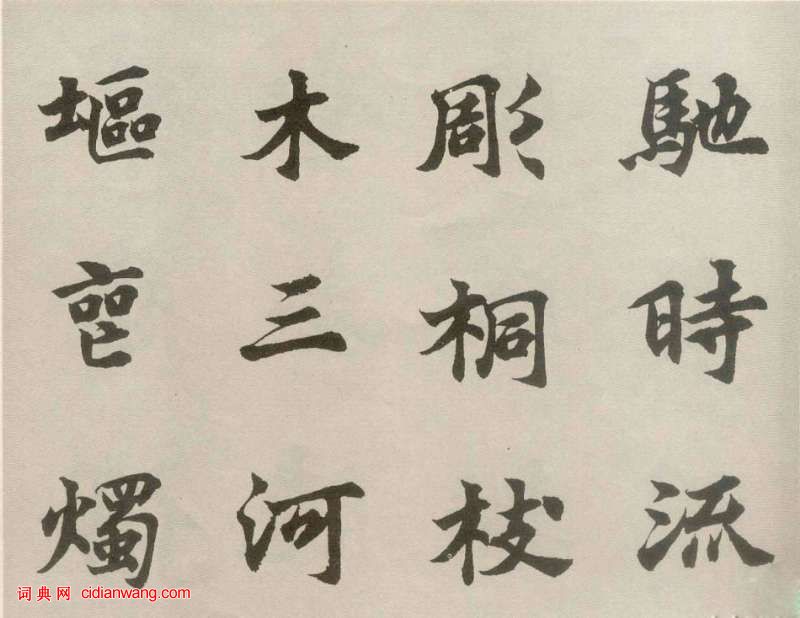 馳時流
彫桐枝
木三河
塸燭
词典网 cidianwang.com